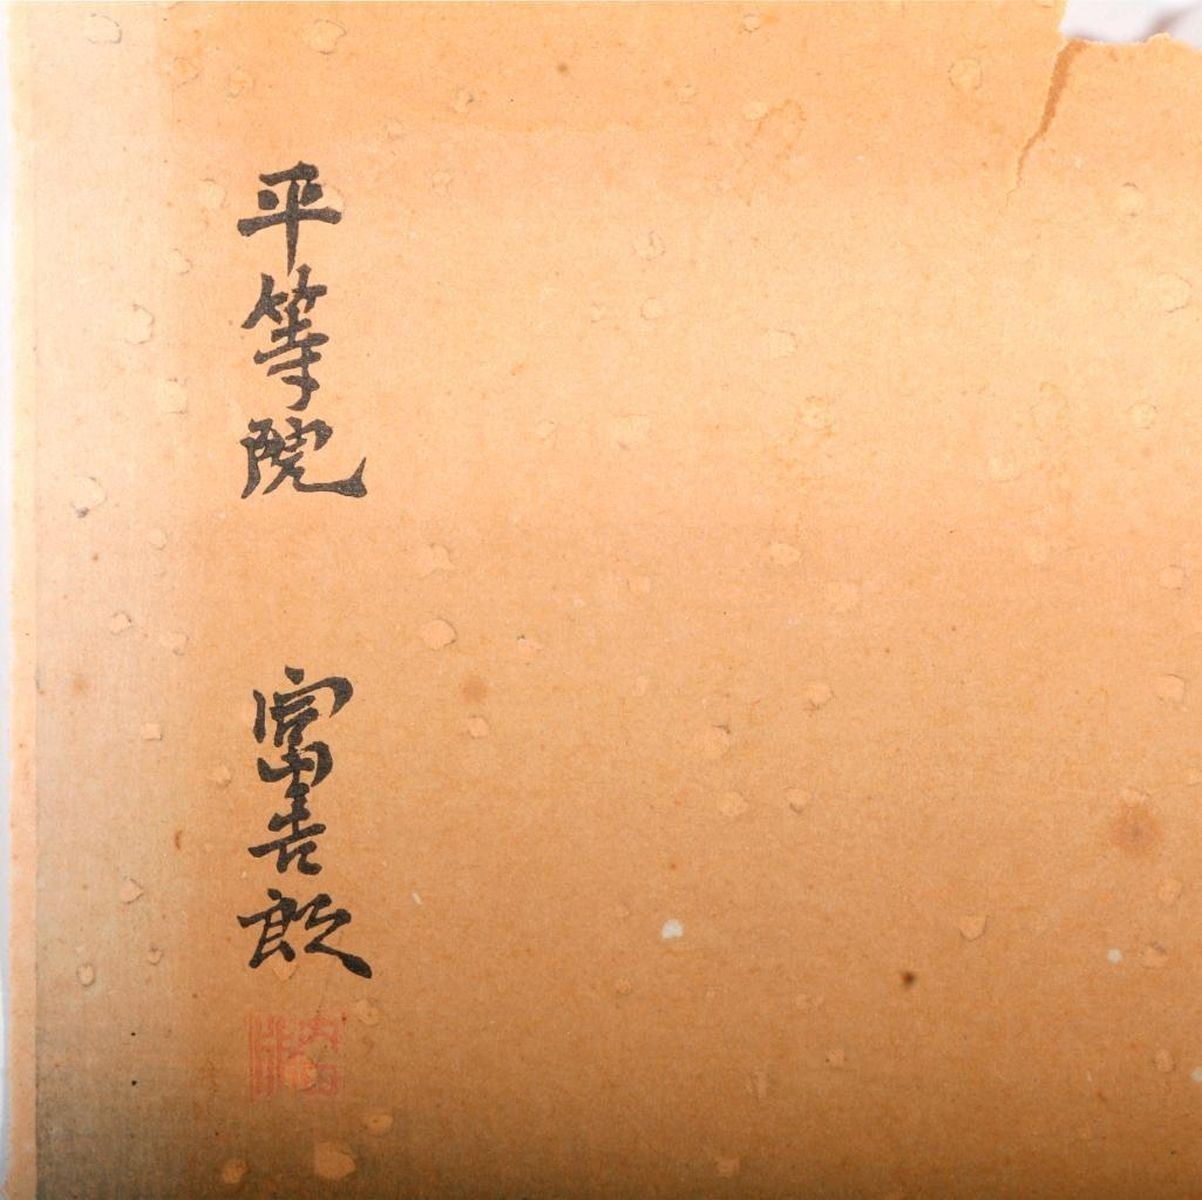 平等院
富吉郎